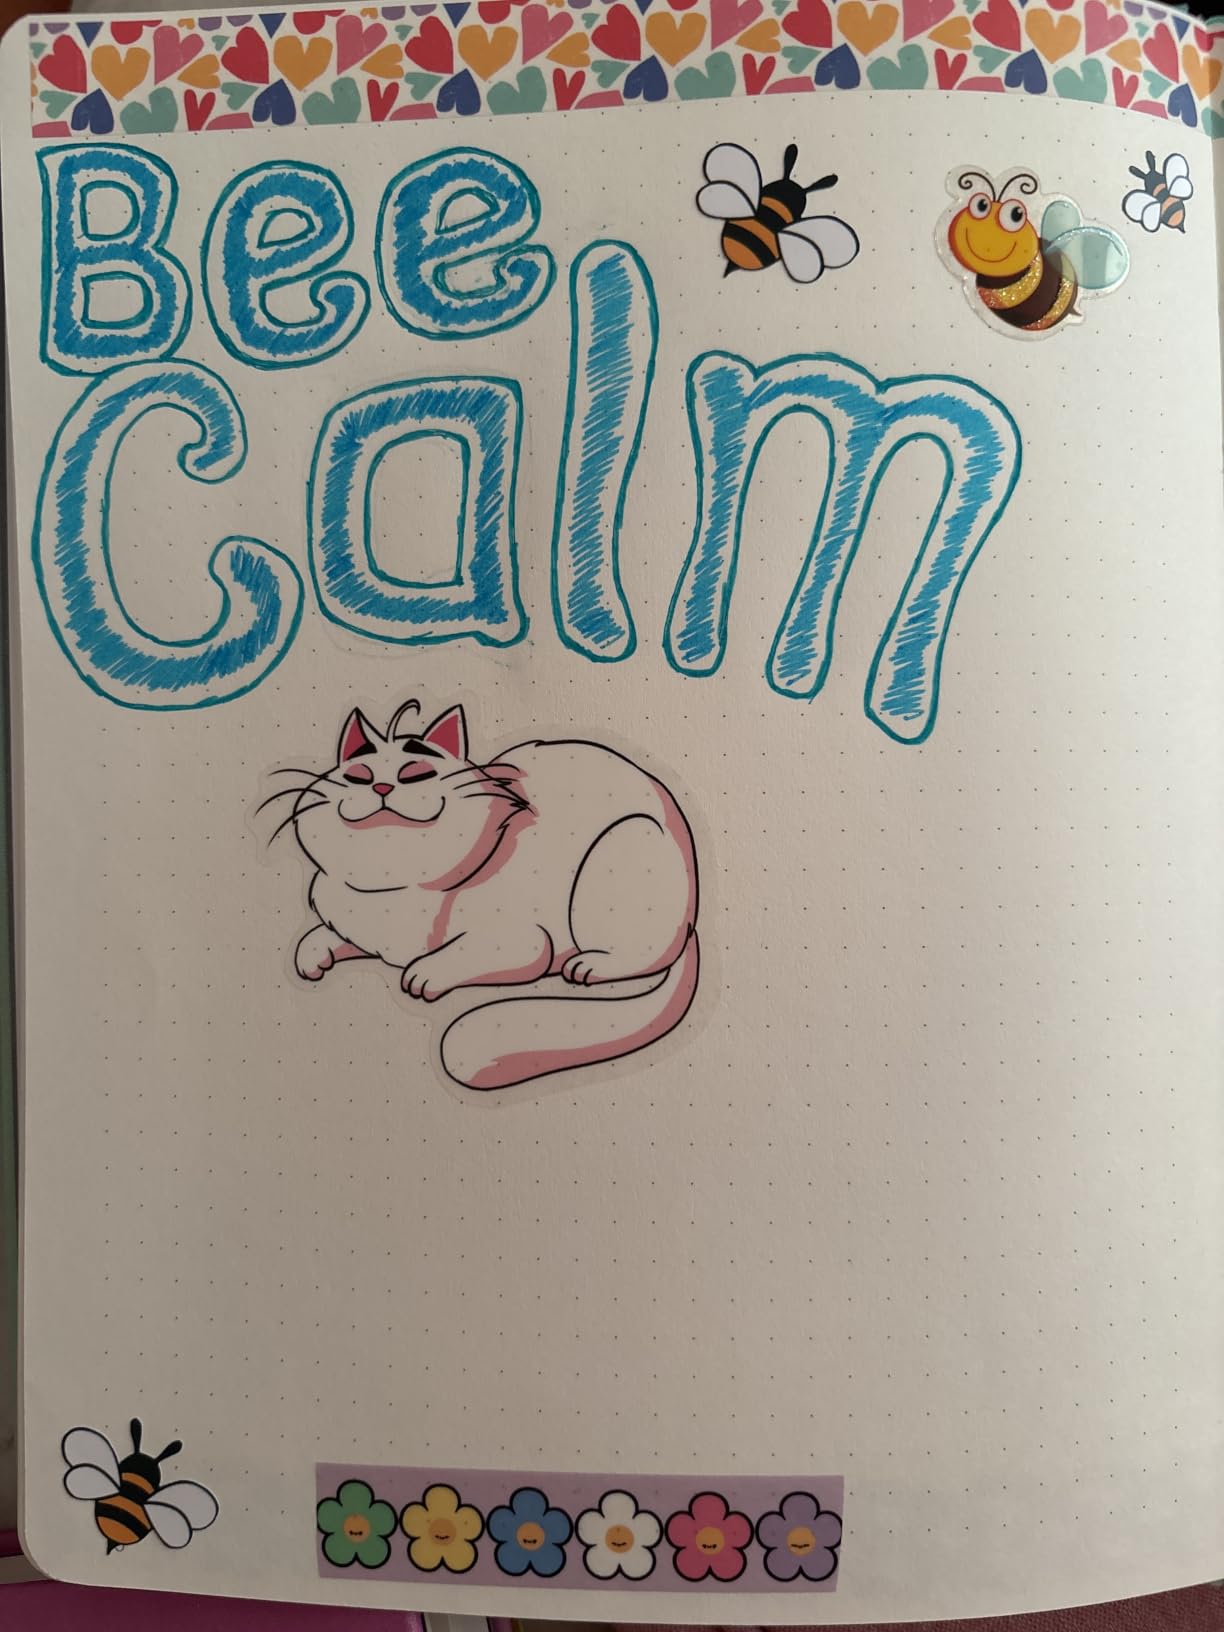 Bee
Calm